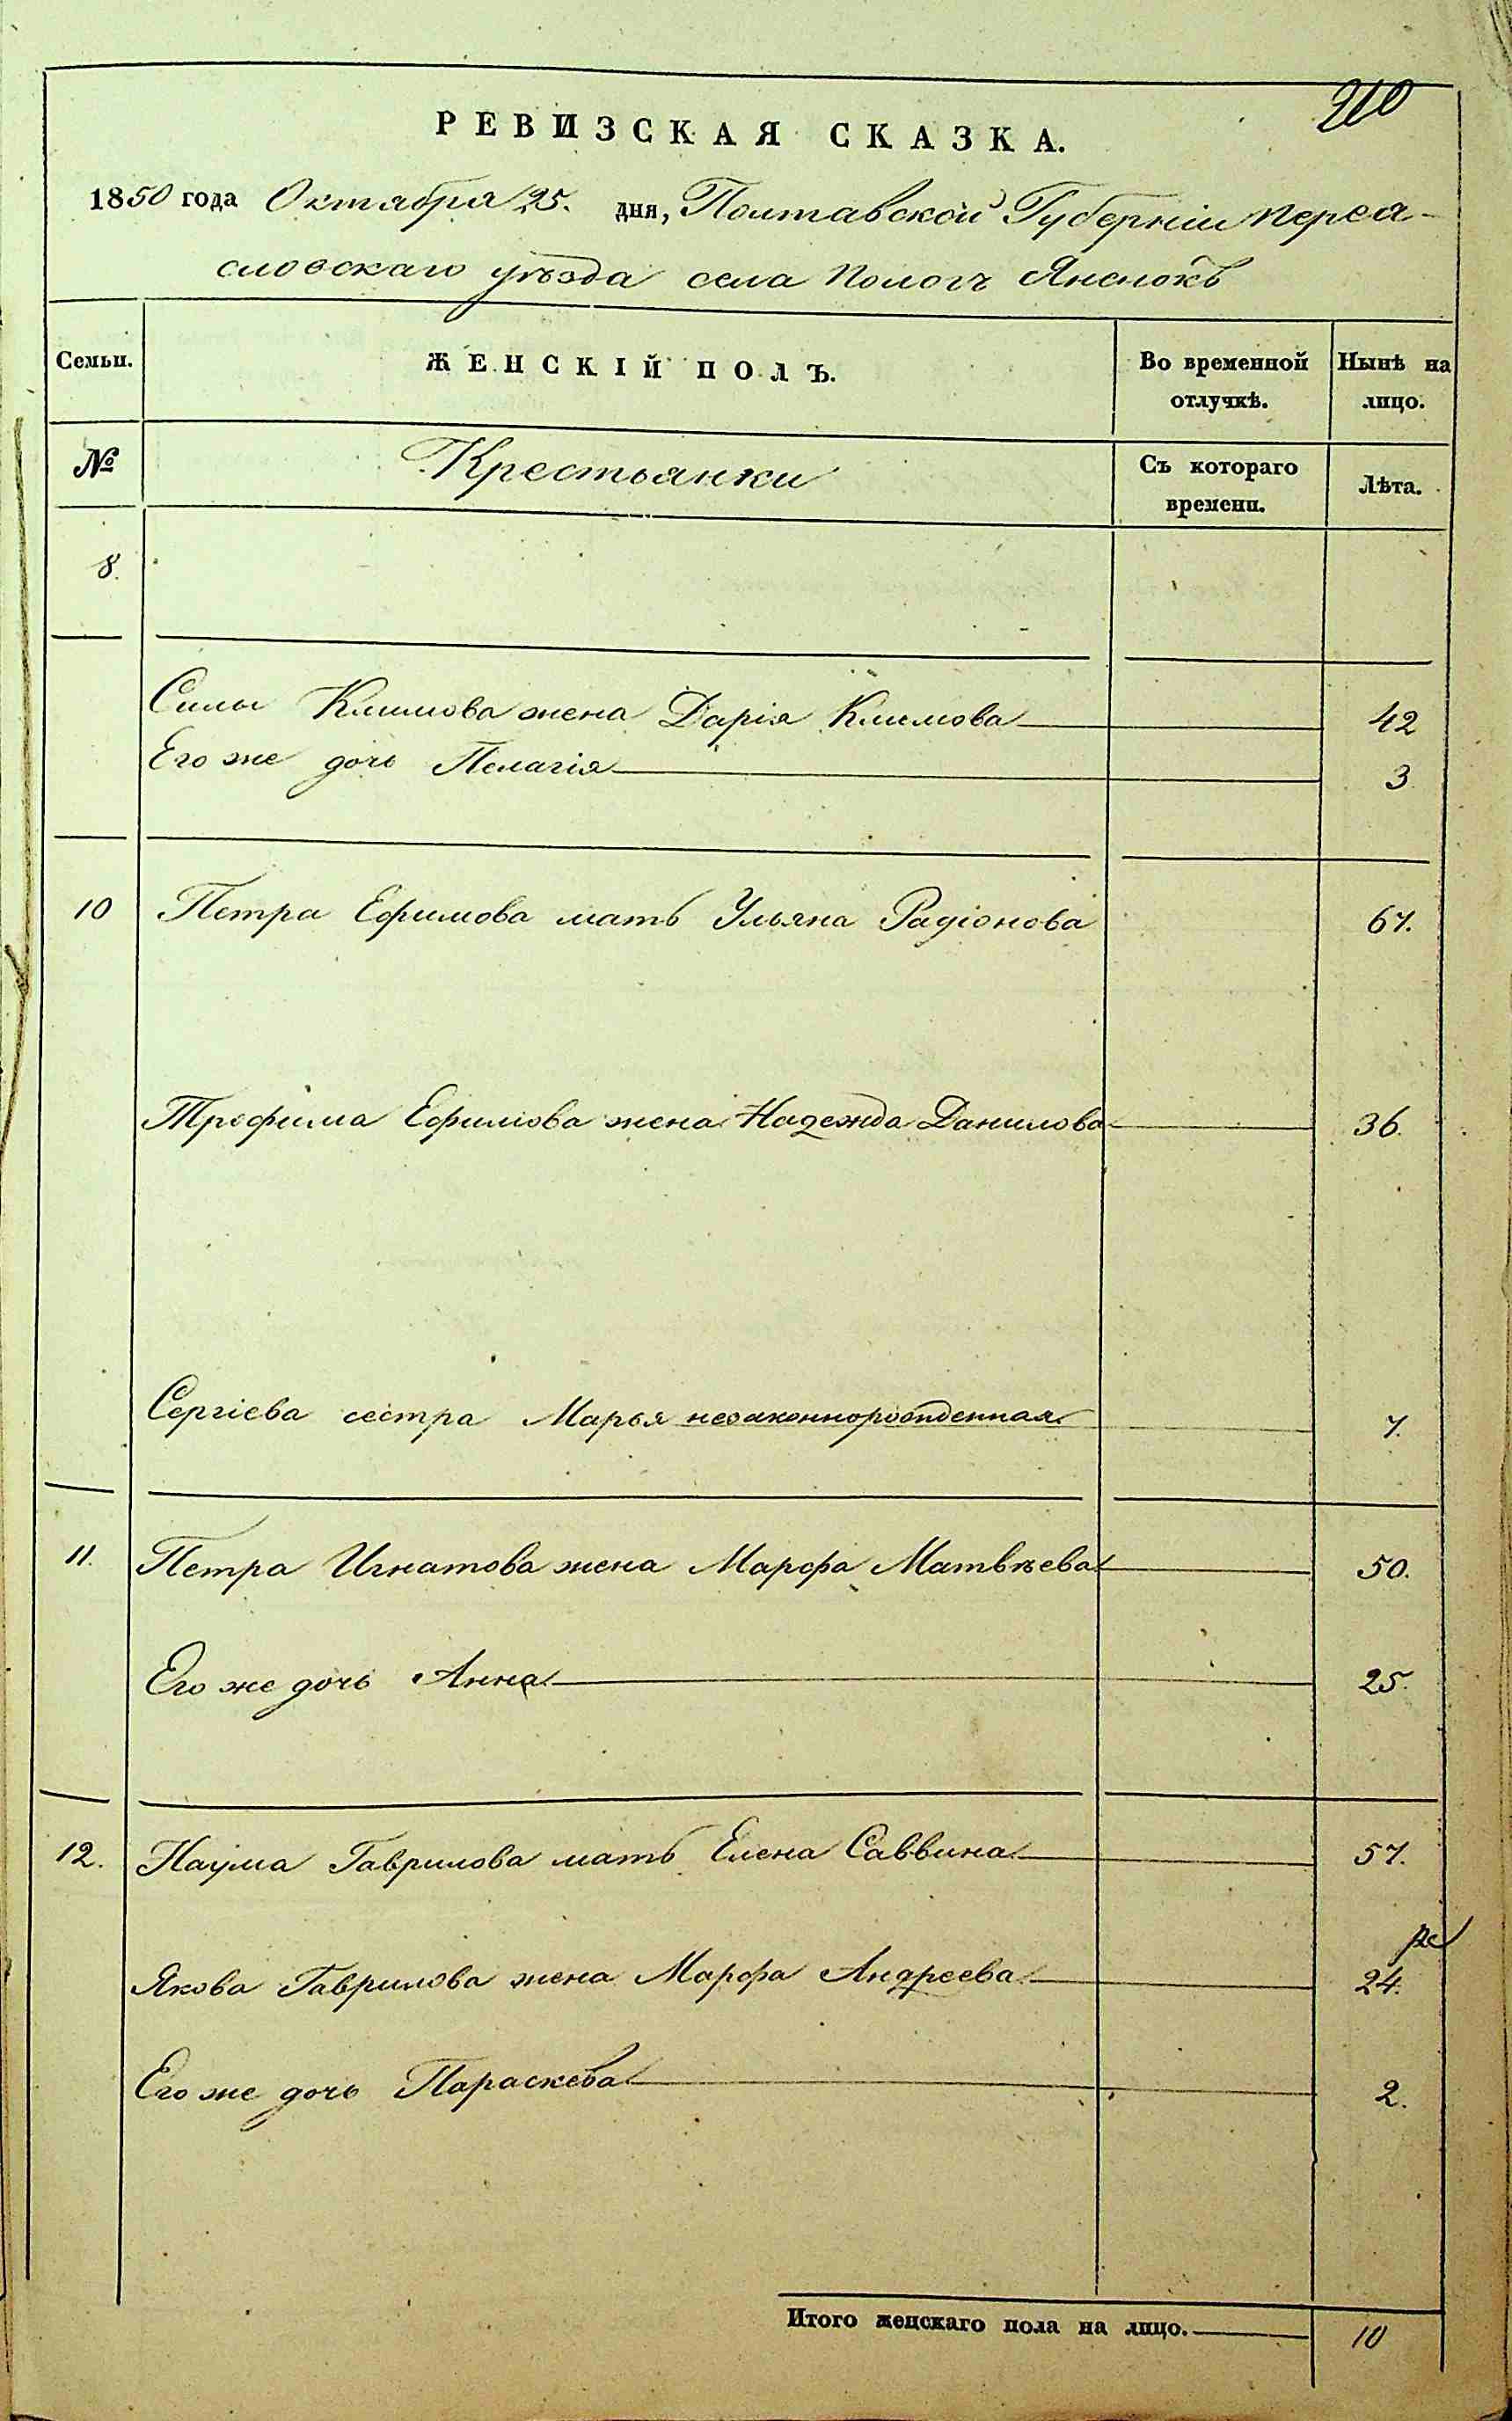 210
РЕВИЗСКАЯ СКАЗКА.
1850 года Октября 25. дня, Полтавской Губерніи Перея-
словскаго уѣзда села Пологъ Яненокъ
Семьи. ЖЕНСКІЙ ПОЛЪ. Во временной отлучкѣ. Нынѣ на лицо.
№ Крестьянки Съ котораго времени. Лѣта.
8.
Силы Климова жена Дарія Климова 42
Его же дочь Пелагія 3
10 Петра Ефимова мать Ульяна Радіонова 67.
Трофима Ефимова жена Надежда Данилова 36.
Сергіева сестра Марья незаконнорожденная 7.
11. Петра Игнатова жена Марфа Матвѣева 50.
Его же дочь Анна 25.
12. Наума Гаврилова мать Елена Саввина 57.
Якова Гаврилова жена Марфа Андреева 24.
Его же дочь Параскева 2.
Итого женскаго пола на лицо. 10